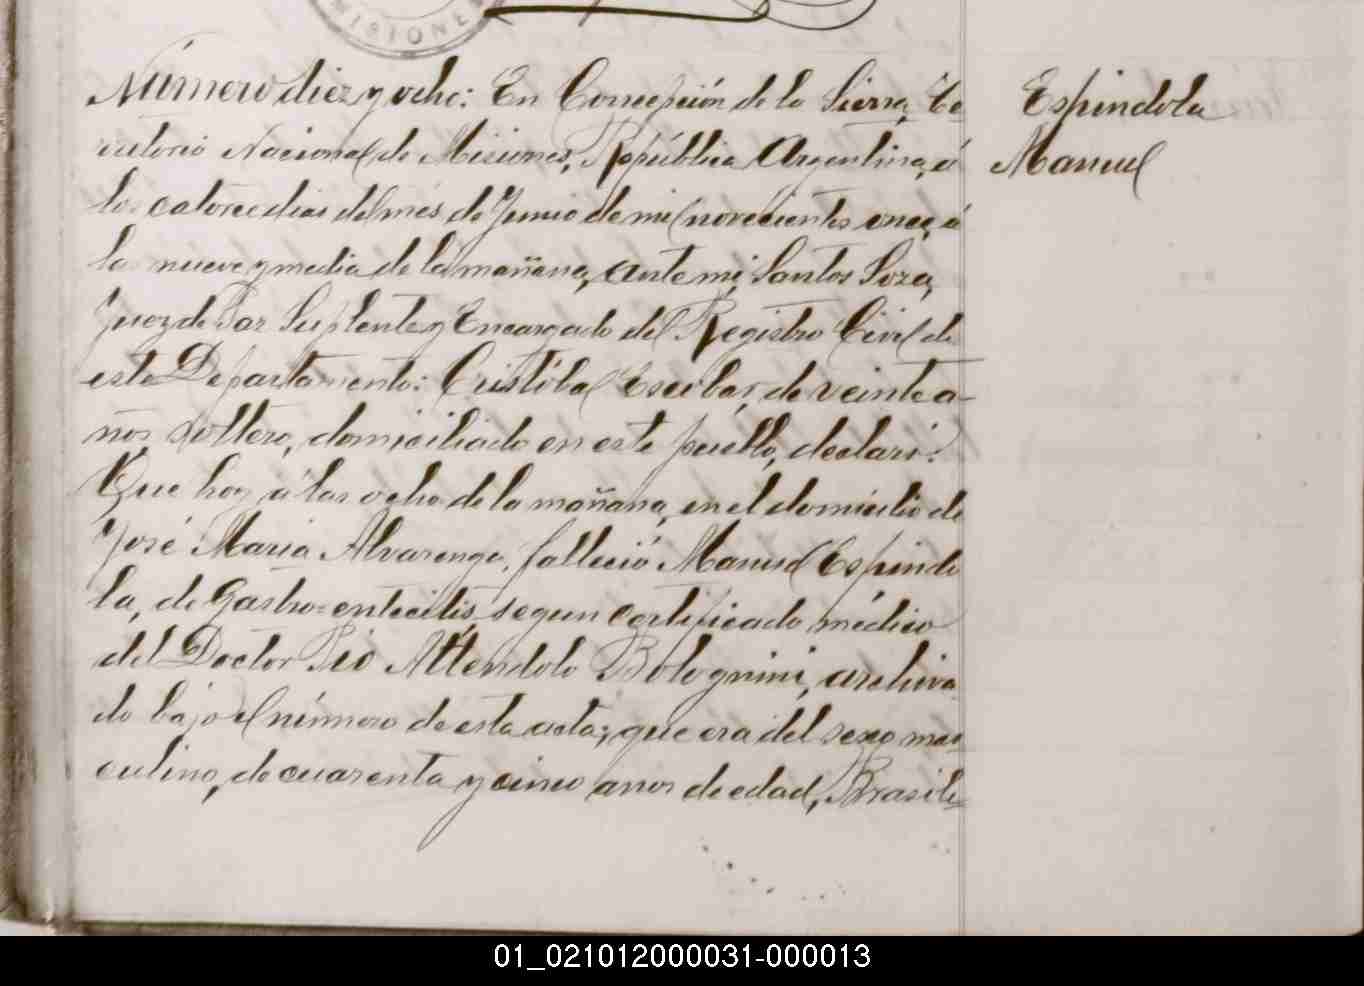 MISIONE
Número diez y ocho: En Concepción de la Sierra, Te
rritorio Nacional de Misiones, República Argentina, á
los catorce dias del mes de Junio de mil novecientos once, á
las nueve y media de la mañana, ante mi, Santos Soza,
Juez de Paz Suplente y Encargado del Registro Civil de
este Departamento: Cristóbal Escobar, de veinte a-
ños, soltero, domiciliado en este pueblo, declaró:
Que hoy á las ocho de la mañana, en el domicilio de
José Maria Alvarenga, falleció Manuel Espindo
la, de Gastro-enteritis segun certificado médico
del Doctor Pio Attendolo Bolognini, archiva
do bajo el número de esta acta; que era del sexo mas
culino, de cuarenta y cinco anos de edad, Brasile=
Espindola
Manuel
01_021012000031-000013